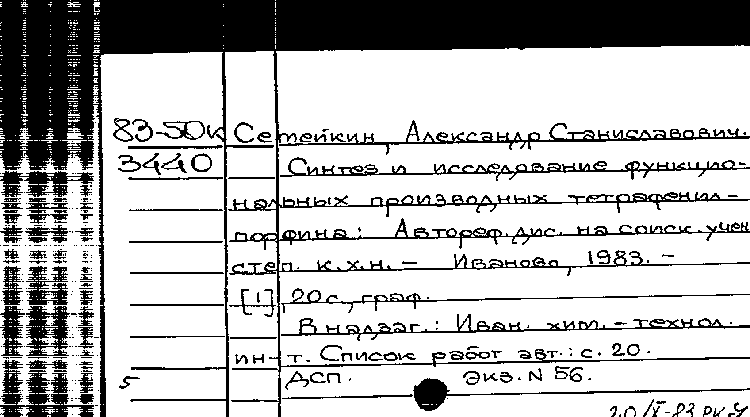 83-50к Семейкин, Александр Станиславович.
3440 Синтез и исследование функцио-
нальных производных тетрафенил-
порфина: Автореф. дис. на соиск. учен
степ. к.х.н. - Иваново, 1983. -
[1], 20 с., граф.
В надзаг.: Иван. хим.-технол.
ин-т. Список работ авт.: с. 20.
5 ДСП. Экз. N 56.
20/X-83